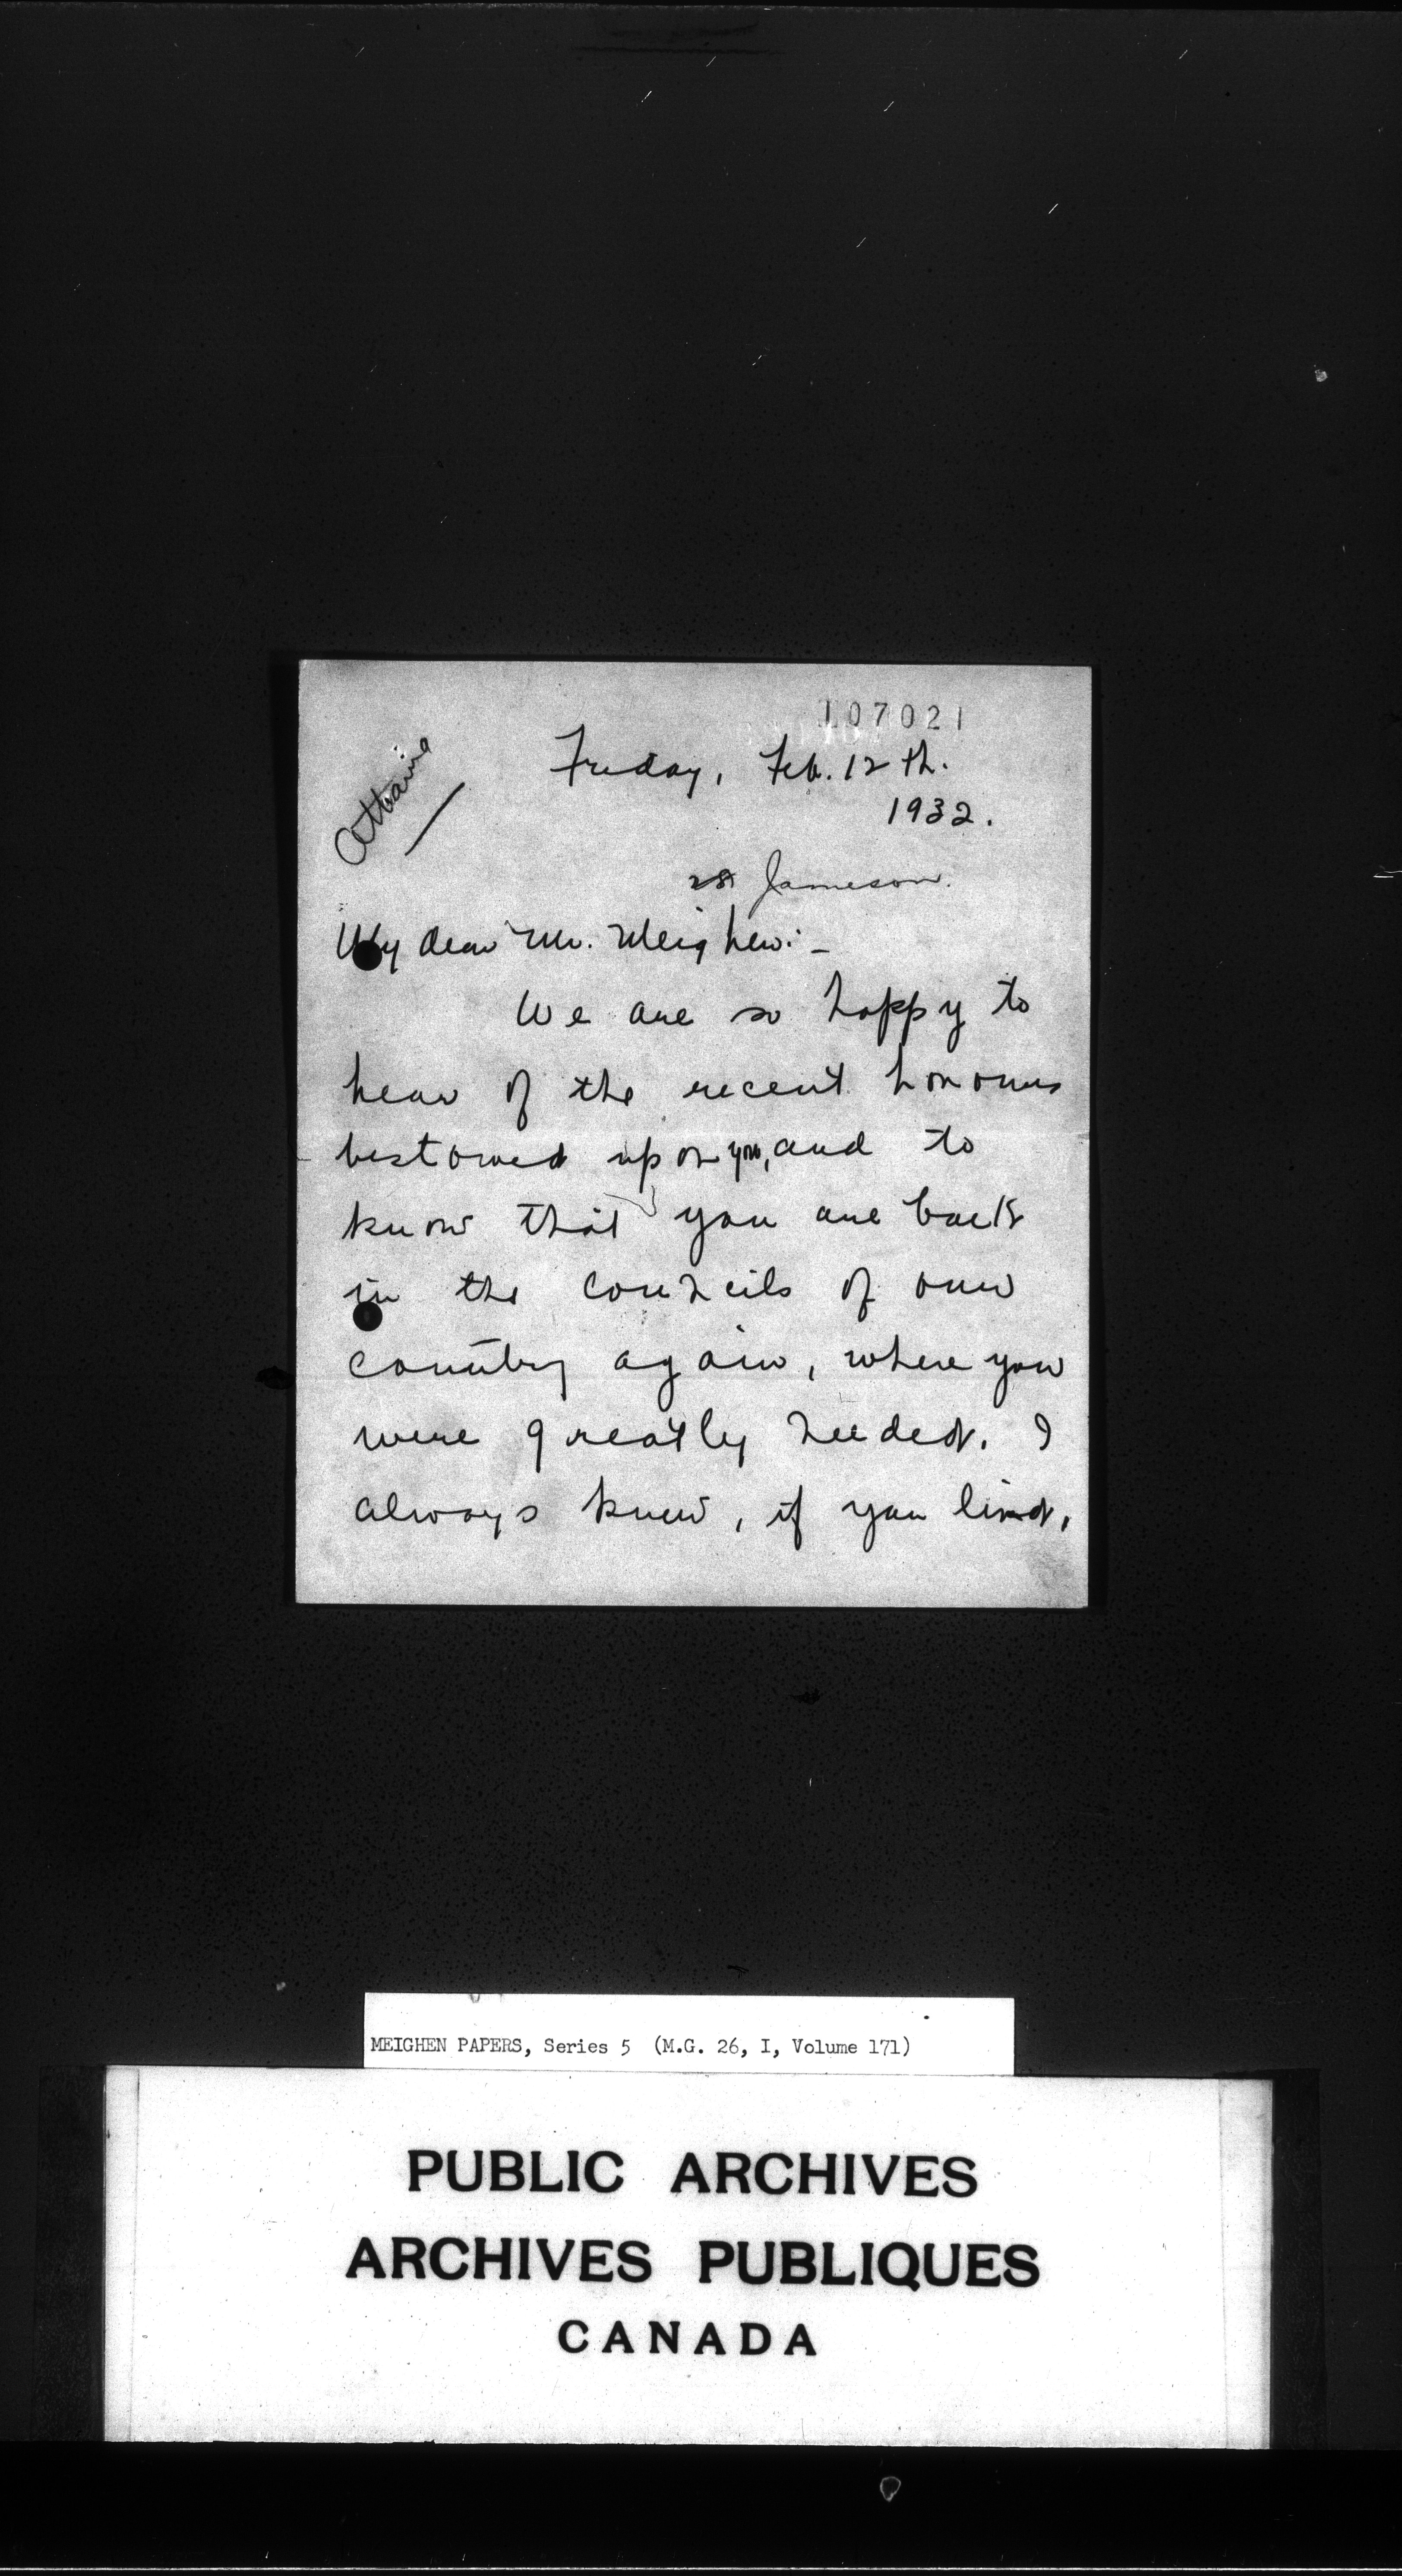 107021
Friday, Feb. 12th.
1932.
28 Jameson.
My dear Mr. Meighen:-
We are so happy to
hear of the recent honours
bestowed upon you, and to
know that you are back
in the councils of our
country again, where you
were greatly needed. I
always knew, if you lived,
MEIGHEN PAPERS, Series 5 (M.G. 26, I, Volume 171)
PUBLIC ARCHIVES
ARCHIVES PUBLIQUES
CANADA